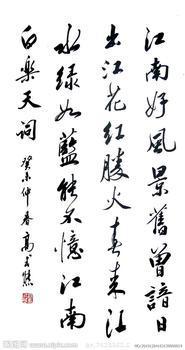 江南好風景舊曾諳日
出江花紅勝火春來江
水綠如藍能不憶江南
白樂天詞
癸未仲春高式熊